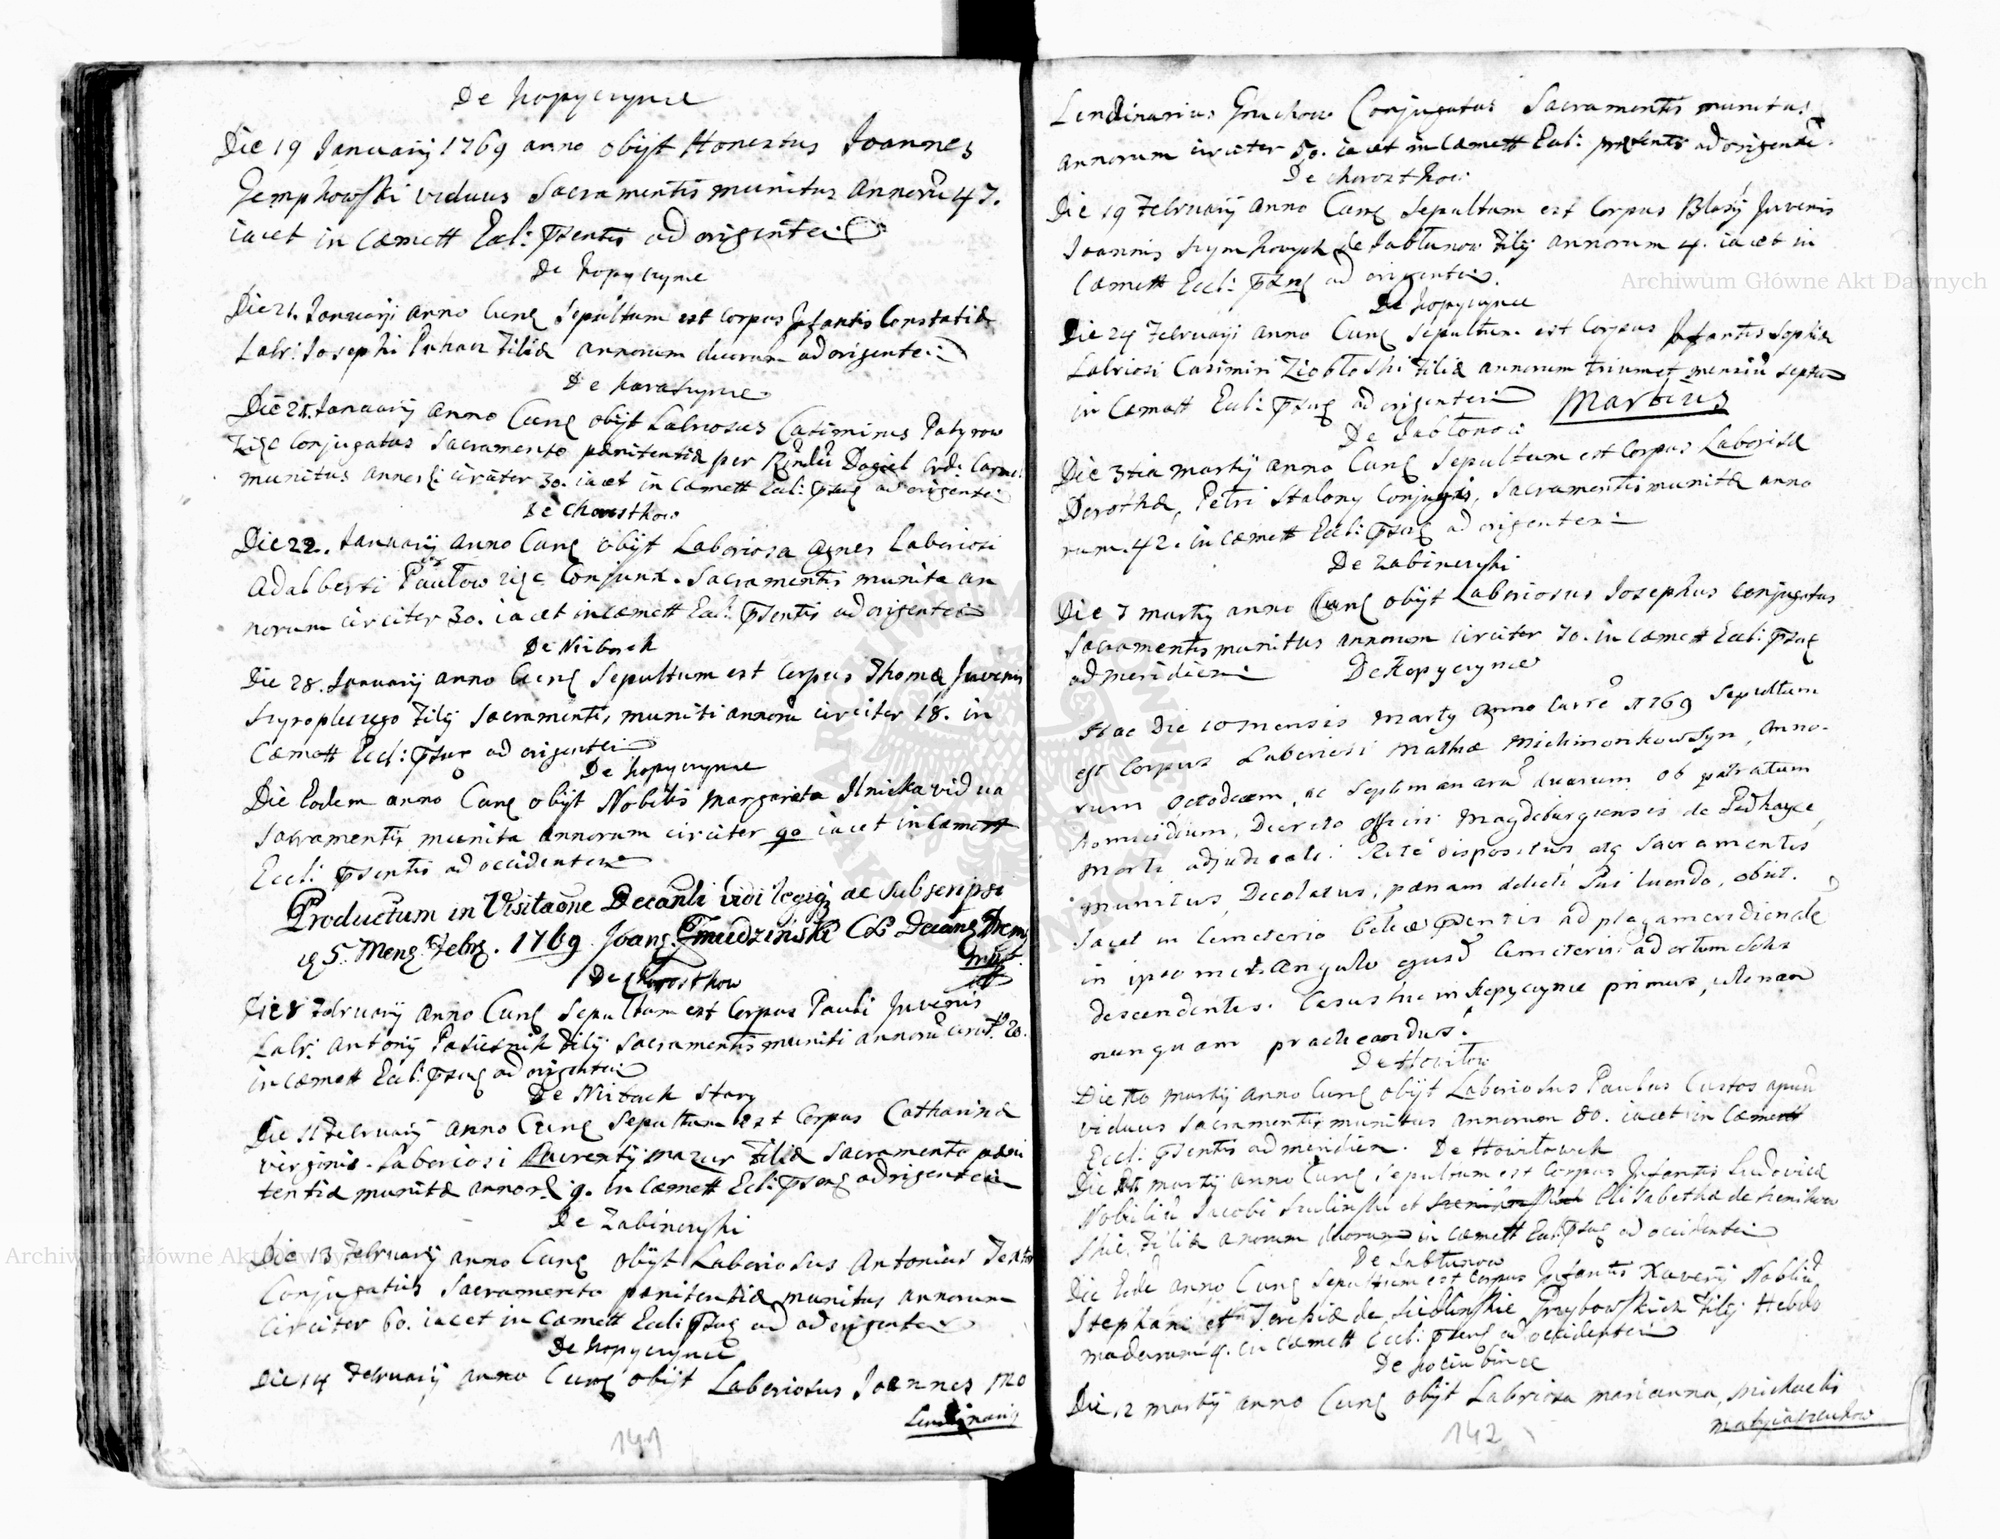 De Kopyczynce
Die 19 Januarij 1769 anno obijt Honestus Joannes
Gempkowski viduus Sacramentis munitus annorũ 47.
iacet in Cæmett Eccl: pṡentis ad origentē:
De Kopyczynce
Die 21. Januarij anno Curꝗ Sepultum est Corpus Infantis Constatiæ
Labr: Josephi Puhacz Filiæ annorum duorum ad origente:
De Karaszynce
Januarij anno Curꝗ obijt Labriosus Casimirus Patyrow
Conjugatus Sacramento pœnitentiæ per Rñdũ Daniel Ord: Carme:
munitus circiter 30. iacet in Cæmett Eccl: pṡnꝗ ad origente:
De Chorostkow
Die 22. Januarij anno Curꝗ obijt Laboriosa Agnes Laboriosi
Adalberti Pawłow Conjunx. Sacramentis munita an
norum circiter 30. iacet in Cæmett Eccl: pṡentis ad origente:
De Nizborek
Die 28. Januarij anno Curꝗ Sepultum est Corpus Thomæ Juvenis
Filij Sacramentis muniti annorũ circiter 18. in
Cæmett Eccl: pṡnꝗ ad origente:
De Kopyczynce
Die Eodem anno Curꝗ obijt Nobilis Margareta Ilnicka vidua
Sacramentis munita annorum circiter 90 iacet in Cæmett
Eccl: pṡentis ad occidentem
Productum in Visitãone Decanli vidi legiꝗ ac subscripsi
5. Mens: Febr. 1769 Joans: Gmudzinski CL Decanꝗ Trem
De Chorostkow
Die 8 February anno Curꝗ Sepultum est Corpus Pauli Juvenis
Labr: Antonij Pasiesnik Filij Sacramentis muniti annorũ circit: 20.
in Cæmett Eccl: pṡnꝗ ad origente:
De Nizborek Stary
Die 11 February anno Curꝗ Sepultum est Corpus Catharinæ
virginis. Laboriosi Laurentij Mazur Filiæ Sacramento pœni
tentiæ munitæ 9. in Cæmett Eccl: pṡenꝗ ad origente:
De Zabincuzki
Die 13 February anno Curꝗ obijt Laboriosus Antonius
Conjugatus Sacramento pœnitentiæ munitus annorum
circiter 60. iacet in Cæmett Eccl: pṡnꝗ ad ad origente
De Kopyczynce
Die 14 February anno Curꝗ obijt Laboriosus Joannes Mo
Lendinariꝗ
141
Lendinarius Gruchow Conjugatus Sacramentis munitus
annorum circiter 50. iacet in Cæmett Eccl: præsentis ad origente:
De Chorostkow:
Die 19 February anno Curꝗ Sepultum est Corpus Blasij Juvenis
Joannis de Jabłunow Filij annorum 4. iacet in
Cæmett Eccl: pṡnꝗ ad origente:
De Kopyczynce
Die 24 February anno Curꝗ Sepultum est Corpus Infantis Sophiæ
Labriosi Casimiri Ziobłoski Filiæ annorum trium et mensiũ septem
in Cæmett Eccl: pṡnꝗ ad origente: Martius
De Jabłonow
Die 3tia Martij anno Curꝗ Sepultum est Corpus Laboriosæ
Dorothæ, Petri Stalony Conjugis, Sacramentis munitæ anno
rum. 42. in Cæmett Eccl: pṡnꝗ ad origente:
De Zabincuzki
Die 7 Martij anno Curꝗ obijt Laboriosus Josephus Conjugatus
Sacramentis munitus annorum circiter 70. in Cæmett Eccl: pṡnꝗ
ad meridiem: De Kopyczynce
Hac Die 10 Mensis Martij anno Currē 1769 Sepultum
est Corpus Laboriosi Mathiæ Michmonkowszyn, anno-
rum octodecem, ac septimanarũ duarum ob patratum
homicidium, Decreto Officii Magdeburgensis de Podhayce,
morti adjudicati: Ritè dispositus atꝗ Sacramentis
munitus, Decolatus, pœnam delicti sui luendo, obiit.
Jacet in Cemeterio Eccliæ pṡentis ad plagam meridionalē
in ipsomet angulo ejusd: Cemeterii ad ortum solis
descendentes. Casus hic in Kopyczynce primus, utinam
nunquam practicandus.
De Howiłow
Die 10 Martij anno Curꝗ obijt Laboriosus Paulus Custos apum
viduus Sacramentis munitus annorum 80. iacet in Cæmett
Eccl: pṡentis ad meridiem. De Howiłowek
Die Martij anno Curꝗ Sepultum est Corpus Infantis Ludovicæ
Nobiliũ Jacobi Szulinski et Elisabethæ de
Filiæ anorum duorum in Cæmett Eccl: pṡnꝗ ad occidente:
De Jabłunow
Die Eode anno Curꝗ Sepultum est Corpus Infantis Xaverij Nobliũ
Stephani et Teresiæ de Siedlinskie Grzybowskich Filij Hebdo
madarum 4. in Cæmett Eccl: pṡenꝗ ad occidente:
De Kociubince
Die 12 Martij anno Curꝗ obijt Labriosa Marianna, Michaelis
142
Archiwum Główne Akt Dawnych
Archiwum Główne Akt Dawnych